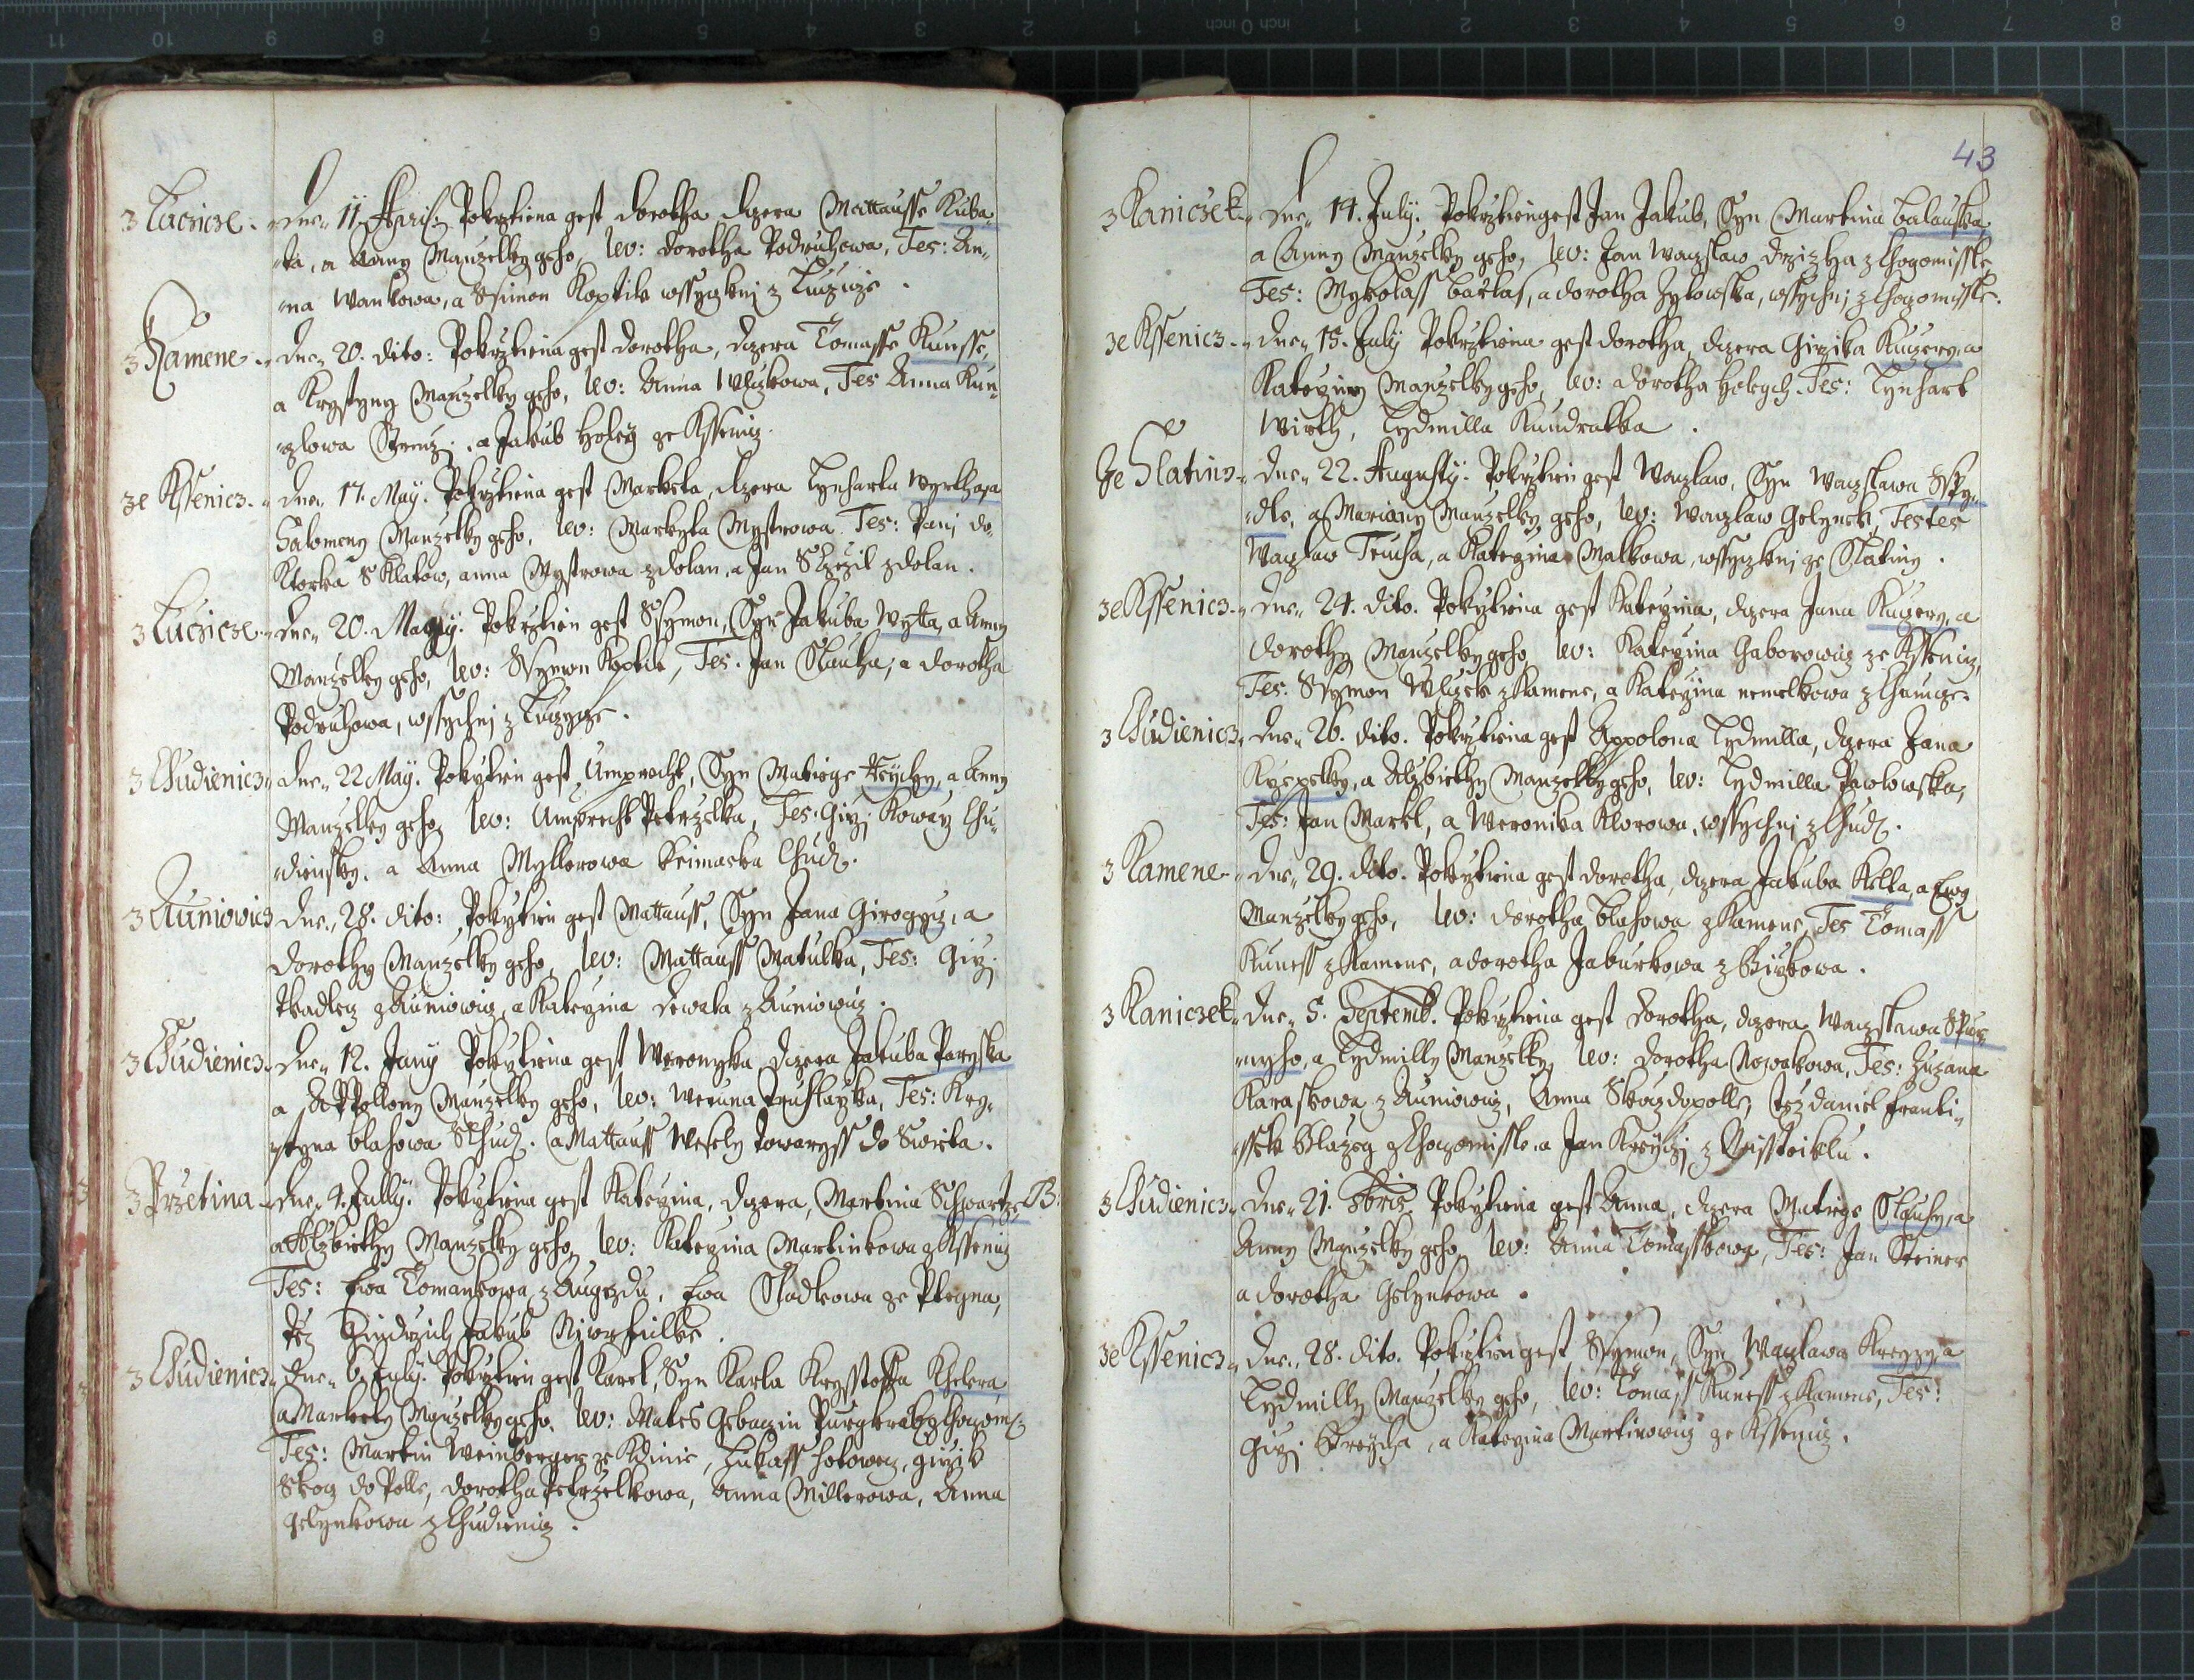 z Luczicze. Dne 11. Aprilis Pokrztiena gest Dorotha, dczera Mattausse Kuba-
ta, a Anny Manzelky geho, lev: Dorotha Podruhowa, Tes: An-
na Wankowa, a Ssimon Koptik wssyczkni z Luczicze.
z Kamene. Dne 20. dito: Pokrztiena gest Dorotha, dczera Tomasse Kunesse,
a Krystyny Manzelky geho, lev: Anna Wlczkowa, Tes Anna Kun-
czlowa, a Jakub Holey ze Kssenicz.
ze Kssenicz. Dne 17. May. Pokrztiena gest Marketa, dczera Lynharta Wyrtha, a
Salomeny Manzelky geho, lev: Markyta Mystrowa. Tes: Pani Do-
Ktorka S Klatow, Anna Mystrowa z dolan, a Jan z dolan.
z Luczicze. Dne 20. May. Pokrztien gest Ssymon, Syn Jakuba Wytta, a Anny
Manzelky geho, lev: Ssymon Koptik, Tes. Jan Slauha, a Dorotha
Podruhowa, wssychni z Luczycze.
z Chudienicz. Dne 22 May. Pokrztien gest Umprecht, Syn Matiege, a Anny
Manzelky geho, lev: Umprecht Petrzelka, Tes: Girzi Kowarz Chu-
diensky, a Anna Myllerowa Chud.
z Auniowicz Dne 28. dito: Pokrztien gest Mattauss, Syn Jana Girogycz, a
Dorothy Manzelky geho, lev: Mattauss Matulka, Tes: Girzi
tkadlecz z Auniowicz, a Katerzina Dewata z Auniowicz.
z Chudienicz. Dne 12. Juny Pokrztiena gest Weronyka, dczera Jakuba Paryska
a Appollony Manzelky geho, lev: Weruna Truhlarzka, Tes: Kry-
styna Blahowa Chud. a Mattauss Wesely Towaryss do Swieta.
z Przetina. Dne 4. Jully. Pokrztiena gest Katerzina, dczera, Martina Schwartze B:
a Alzbiethy Manzelky geho, lev: Katerzina Martinkowa z Kssenicz
Tes: Ewa Tomankowa, z Augezdu, Ewa Sladkowa ze
Jindrzich Jakub
z Chudienicz. Dne 6. July. Pokrztien gest Karel, Syn Karla Krysstoffa Khelera,
a Markety Manzelky geho, lev: Mates Purgkrabj z Chocom.
Tes: Martin Weinberger ze Kdinie, Lukass, Girzik
Skocz do Polle, Dorotha Petrzelkowa, Anna Millerowa, Anna
Gelynkowa z Chudienicz.
43
z Kaniczek. Dne 14. July. Pokrztien gest Jan Jakub, Syn Martina Balauska,
a Anny Manzelky geho, lev: Jan Waczlaw z Chocomissle,
Tes: Mykolass, a Dorotha, wssychni z Chocomissle.
ze Kssenicz. Dne 15. July Pokrztiena gest Dorotha, dczera Girzika Kuczery, a
Katerziny Manzelky geho, lev: Dorotha Holeych. Tes: Lynhart
Wirth, Lydmilla Kundratka.
Ze Slatiny. Dne 22. Augusty. Pokrztien gest Waczlaw, Syn Waczlawa Sspy-
dle, a Mariany Manzelky geho, lev: Waczlaw Gelynek, Testes
Waczlaw Trucha, a Katerzina Malkowa, wssyczkni ze Slatiny.
ze Kssenicz. Dne 24. dito. Pokrztiena gest Katerzina, dczera Jana Kuczery, a
Dorothy Manzelky geho, lev: Katerzina Gaborowicz ze Kssenicz,
Tes. Ssymon Wlczek z Kamene, a Katerzina Nemelkowa z Lhunicze.
z Chudienicz. Dne 26. dito. Pokrztiena gest Appolona Lydmilla, dczera Jana
Krzepelky, a Alzbiethy Manzelky geho, lev: Lydmilla Pawlowska,
Tes: Jan Markl, a Weronika Klorowa, wssychni z Chud.
z Kamene. Dne 29. dito. Pokrztiena gest Dorotha, dczera Jakuba Kella, a Ewy
Manzelky geho, lev: Dorotha Blahowa z Kamene, Tes Tomass
Kuness z Kamene, a Dorotha Jaburkowa z Birkowa.
z Kaniczek. Dne 5. Septemb. Pokrztiena gest Dorotha, dczera Waczlawa
rnyho, a Lydmilly Manzelky, lev: Dorotha Nowakowa, Tes: Zuzana
Karaskowa z Auniowicz, Anna Skoczdopolle, tez Daniel Franti-
ssek z Chocomissle, a Jan Kreyczi z
z Chudienicz. Dne 21. 8bris. Pokrztiena gest Anna, dczera Matiege Slauhy, a
Anny Manzelky geho, lev: Anna Tomasskowa, Tes: Jan Steiner
a Dorotha Gelynkowa.
ze Kssenicz. Dne 28. dito. Pokrztien gest Ssymon, Syn Waczlawa Kreyzy, a
Lydmilly Manzelky geho, lev: Tomass Kuness z Kamene, Tes:
Girzi Kreycha, a Katerzina Martinowicz ze Kssenicz.